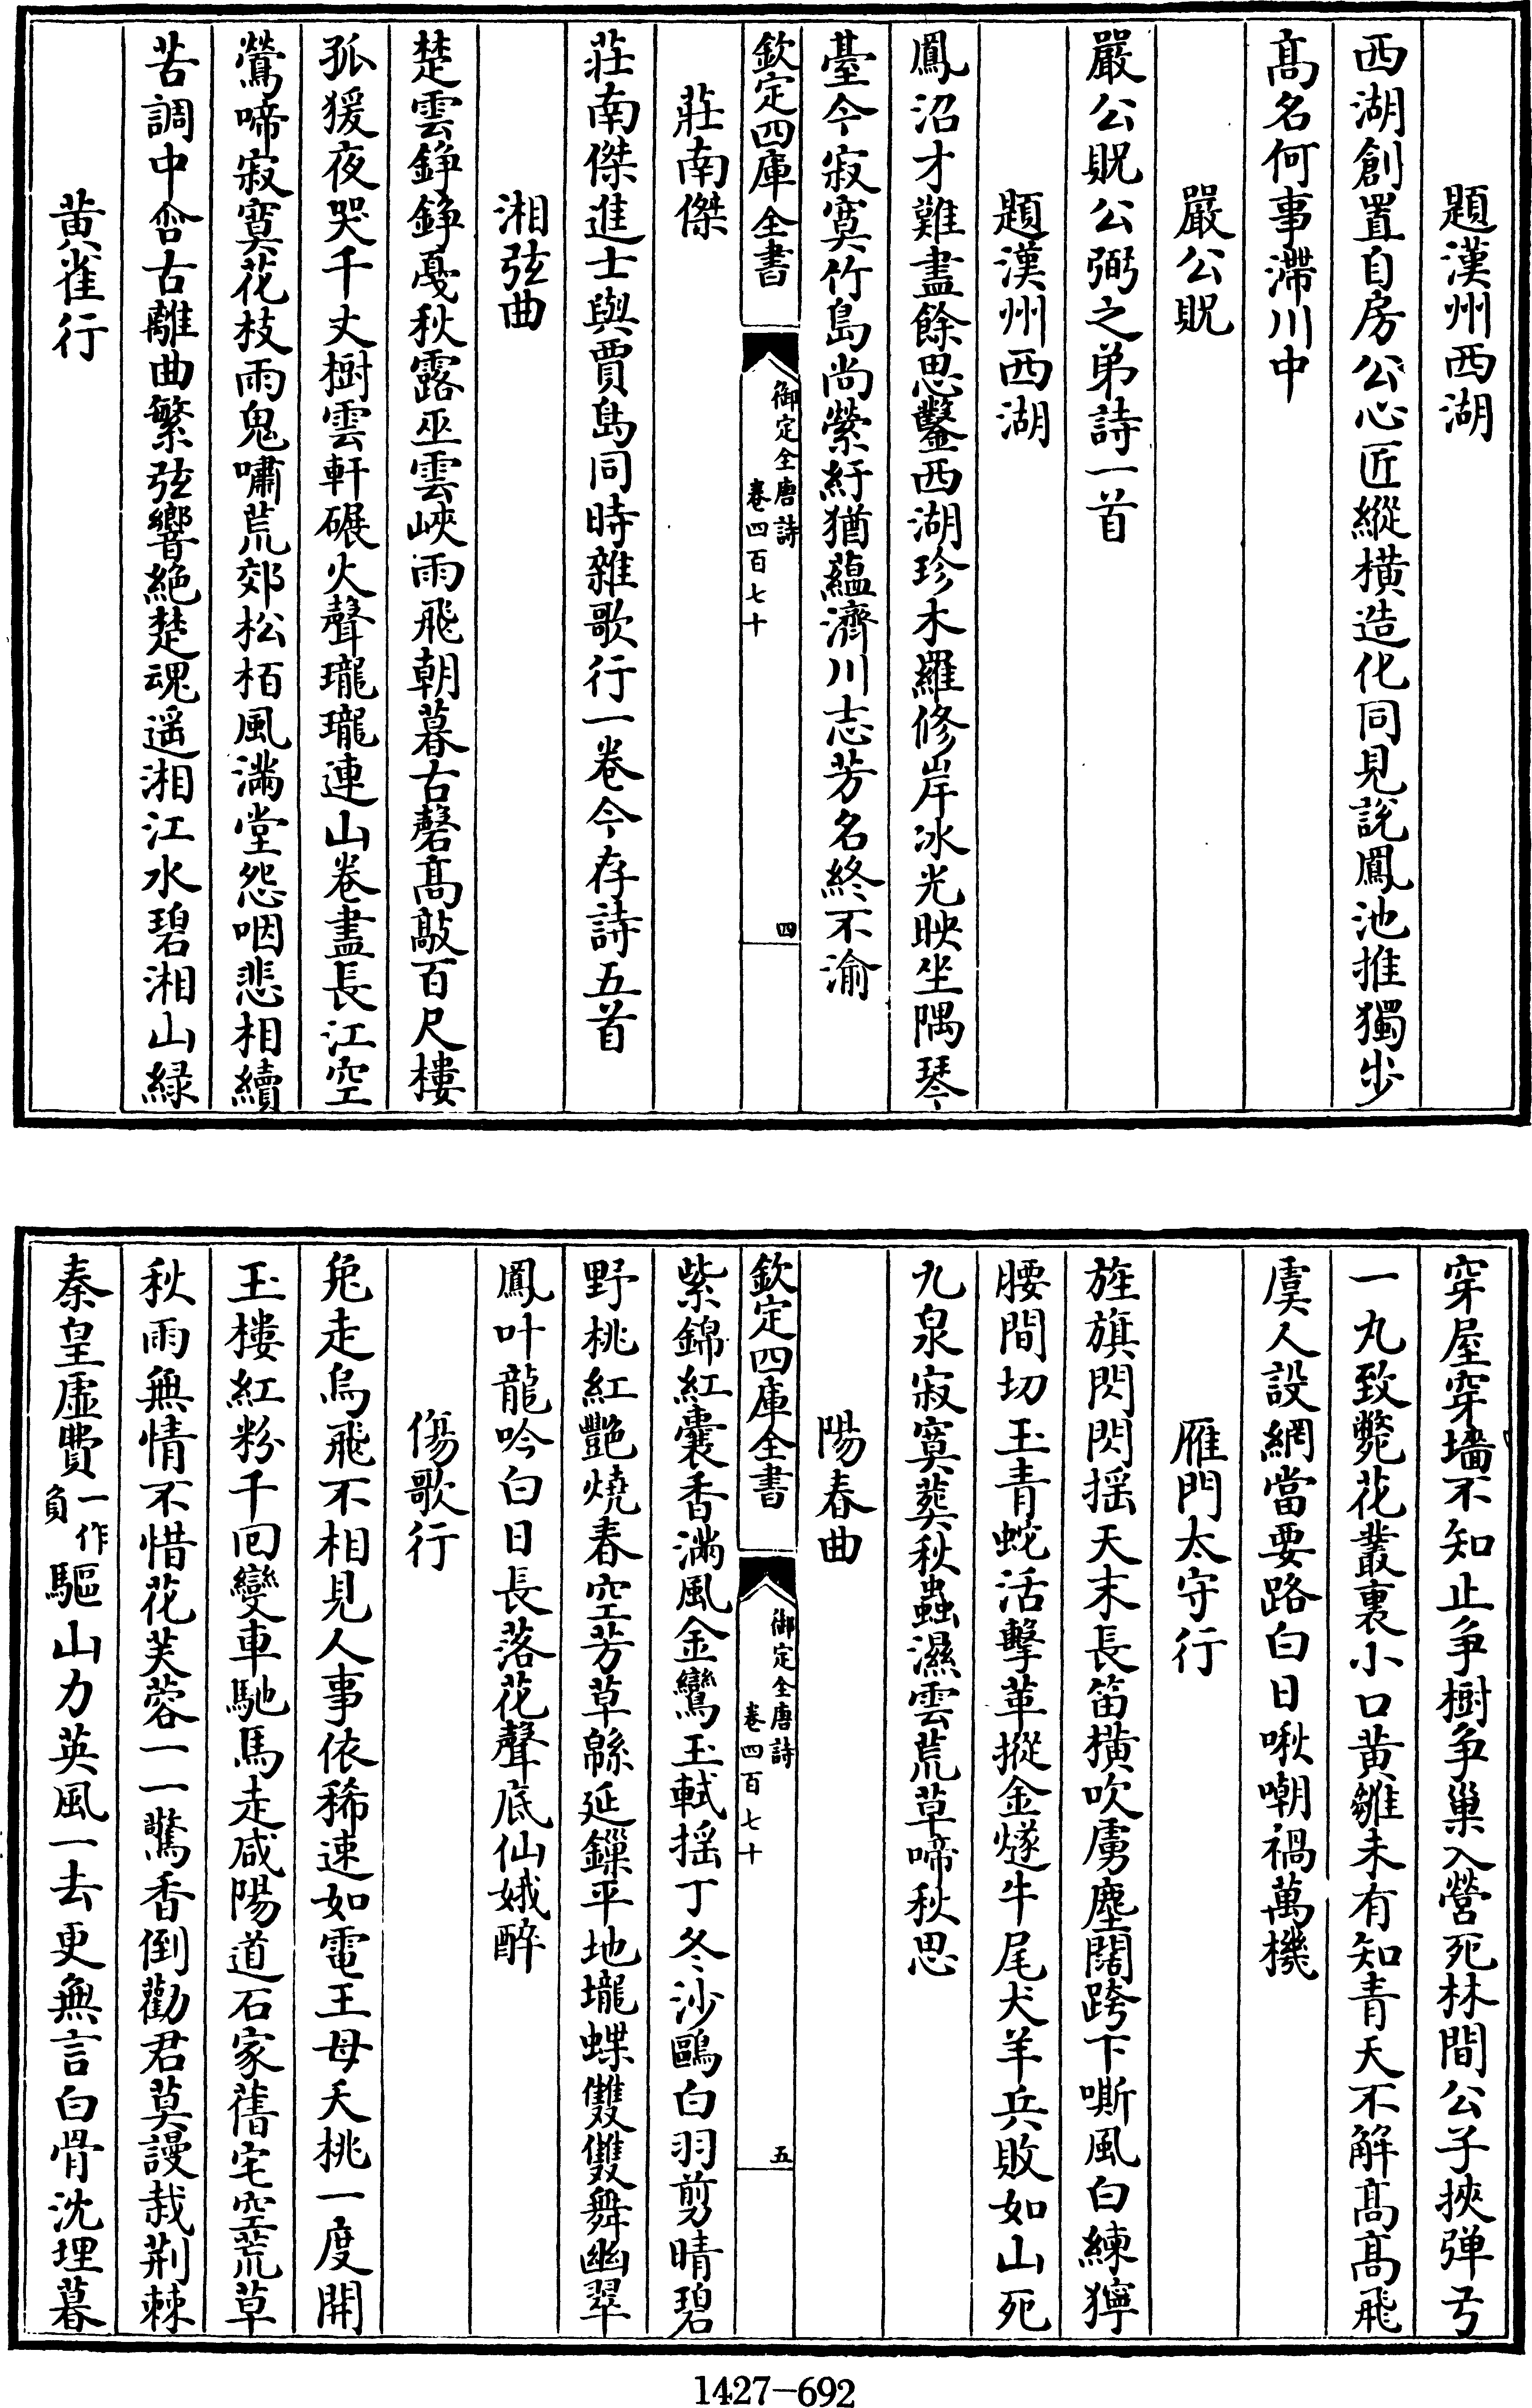 題漢州西湖
西湖創置自房公心匠縱橫造化同見說鳳池推獨步
髙名何事滯川中
嚴公貺
嚴公貺公弼之弟詩一首
題漢州西湖
鳳沼才難盡餘思鑿西湖珍木羅修岸冰光映坐隅琴
臺今寂寞竹島尚縈紆猶藴濟川志芳名終不渝
欽定四庫全書
御定全唐詩
卷四百七十
四
莊南傑
莊南傑進士與賈島同時雜歌行一卷今存詩五首
湘弦曲
楚雲錚錚戞秋露巫雲峽雨飛朝暮古磬髙敲百尺樓
孤猨夜哭千丈樹雲軒碾火聲瓏瓏連山卷盡長江空
鶯啼寂寞花枝雨鬼嘯荒郊松栢風滿堂怨咽悲相續
苦調中含古離曲繁弦響絶楚魂遥湘江水碧湘山緑
黄雀行
穿屋穿墻不知止争樹争巢入營死林間公子挾弹弓
一丸致斃花叢裏小口黄雛未有知青天不解髙髙飛
虞人設網當要路白日啾嘲禍萬機
雁門太守行
旌旗閃閃揺天末長笛橫吹虜塵闊跨下嘶風白練獰
腰間切玉青蛇活擊革摐金燧牛尾犬羊兵敗如山死
九泉寂寞葬秋蟲濕雲荒草啼秋思
陽春曲
欽定四庫全書
御定全唐詩
卷四百七十
五
紫錦紅囊香滿風金鸞玉軾揺丁冬沙鷗白羽剪晴碧
野桃紅艷燒春空芳草緜延鏁平地壠蝶雙雙舞幽翠
鳳叶龍吟白日長落花聲底仙娥醉
傷歌行
兔走烏飛不相見人事依稀速如電王母夭桃一度開
玉樓紅粉千回變車馳馬走咸陽道石家舊宅空荒草
秋雨無情不惜花芙蓉一一驚香倒勸君莫謾栽荆棘
秦皇虚費一作負驅山力英風一去更無言白骨沈埋暮
1427-692